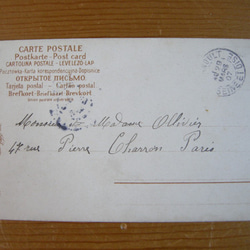 CARTE POSTALE
Postkarte - Post card
CARTOLINA POSTALE - LEVELEZŐ-LAP
Powszechna karta korespondencyjna - Dopisnice
ОТКРЫТОЕ ПИСЬМО
Tarjeta postal - Cartão postal
Brefkort - Briefkaart - Brevkort
Monsieur et Madame Ollivier
47 rue Pierre Charron Paris